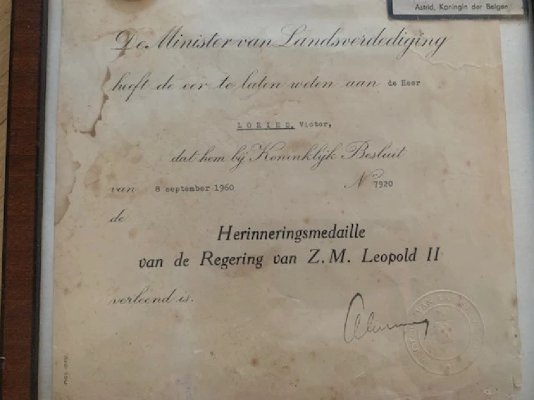 Astrid, Koningin der Belgen
De Minister van Landsverdediging
heeft de eer te laten weten aan de Heer
Victor,
dat hem bij Koninklijk Besluit
van 8 september 1960 N° 7920
de
Herinneringsmedaille
van de Regering van Z.M. Leopold II
verleend is.